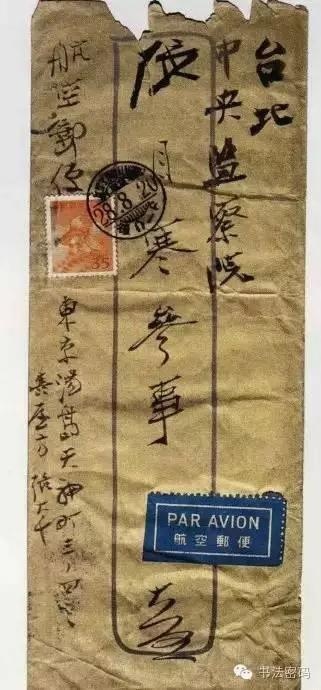 台北
中央監察院
張目寒參事
航空郵便
東京湯島天神町三ノ四
張大千
28.8.20
35
PAR AVION
航空郵便
书法密码